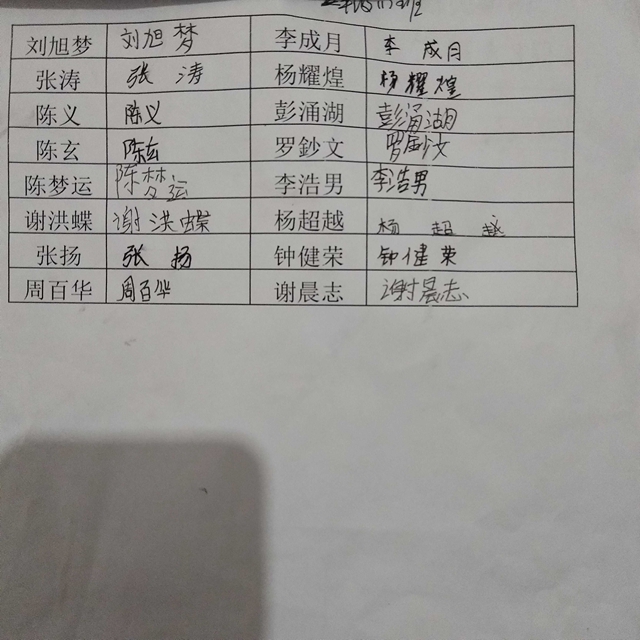 刘旭梦 刘旭梦 李成月 李成月
张涛 张涛 杨耀煌 杨耀煌
陈义 陈义 彭涌湖 彭涌湖
陈玄 陈玄 罗鈔文
陈梦运 陈梦运 李浩男 李浩男
谢洪蝶 谢洪蝶 杨超越 杨超越
张扬 张扬 钟健荣 钟健荣
周百华 周百华 谢晨志 谢晨志